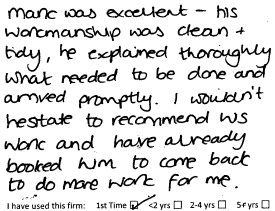 Marc was excellent - his
workmanship was clean +
tidy, he explained thoroughly
what needed to be done and
arrived promptly. I wouldn't
hestate to recommend his
work and have already
booked him to come back
to do more work for me.
I have used this firm: 1st Time ☑ <2 yrs ☐ 2-4 yrs ☐ 5+ yrs ☐